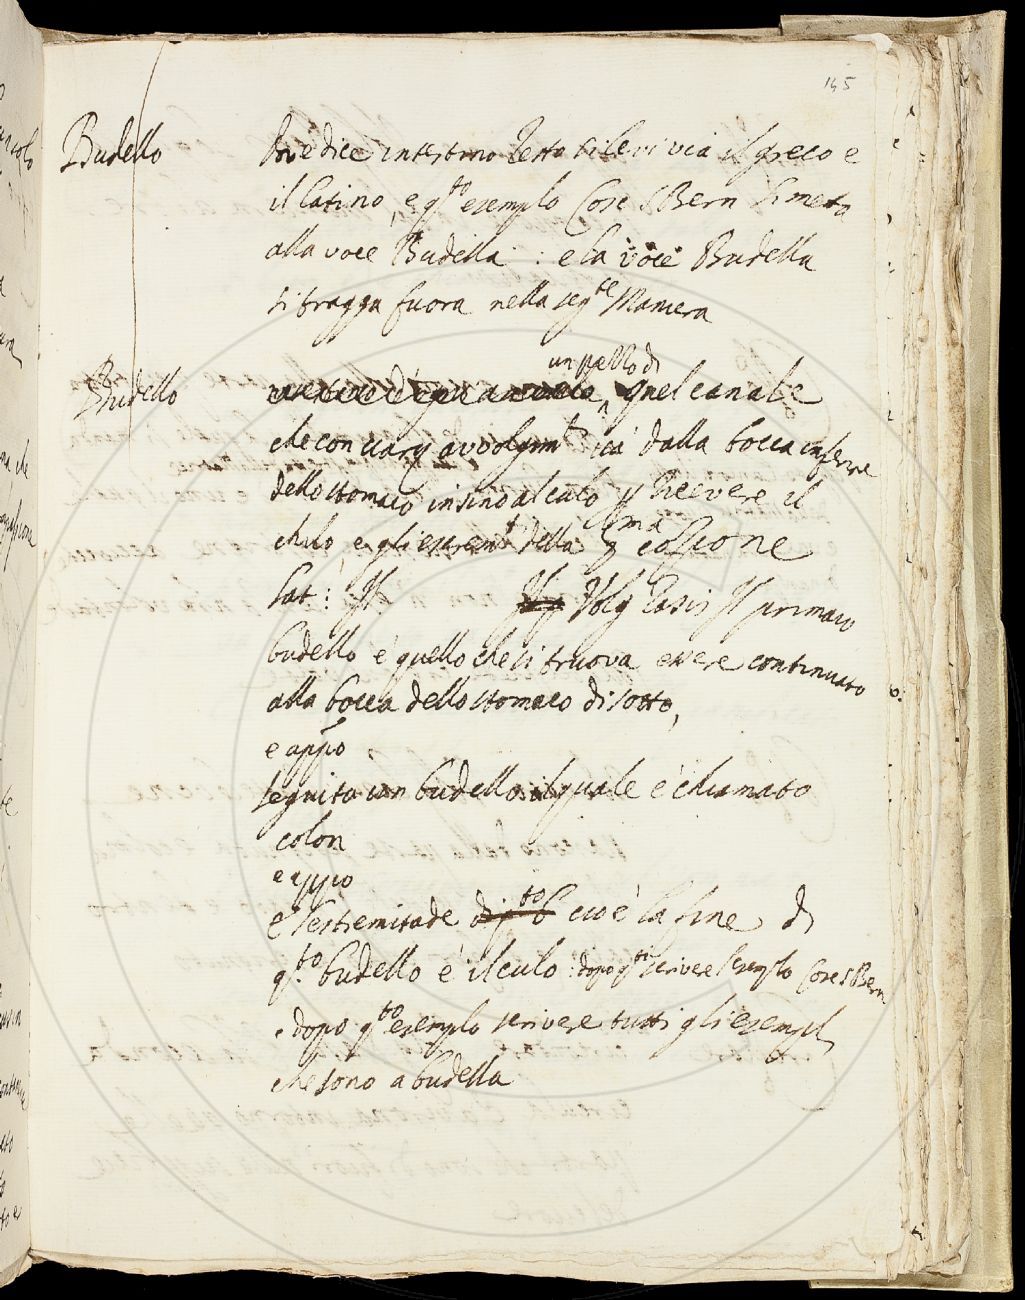 145
Budello
dove dice intestino resto si levi via il greco e
il latino, e q.to esempio Cose S Bern si metta
alla voce Budella : e la voce Budella
si tragga fuora nella seg.te Maniera
Budello
un pezzo di
quel canale
che con varij avvolgim.ti va dalla bocca inferre
dello stomaco insino al culo p ricevere il
chilo e gli escrem.ti della p.ma cozione
Lat: Volg Rasis Il primaio
budello è quello che si truova essere continuato
alla bocca dello stomaco di sotto,
e app.o
seguita un budello il quale è chiamato
colon
e appo
e l'estremitade cio è la fine di
q.to budello è il culo : dopo q.to scrivere l'esempio Cose S Bern
e dopo q.to esemplo scrivere tutti gli esempli
che sono a budella